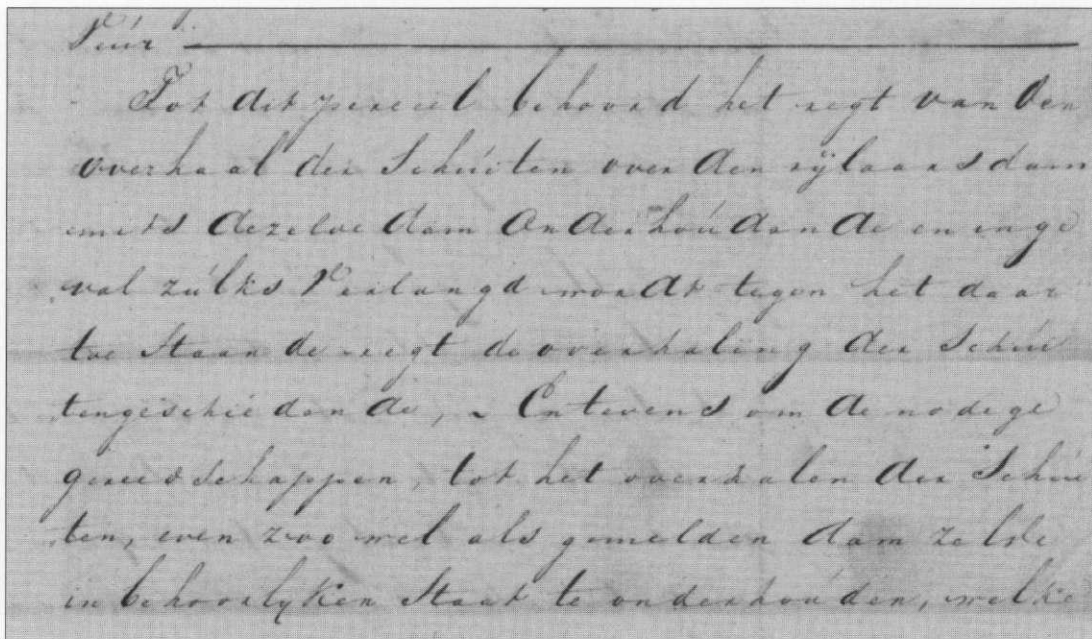 Vuúr
Tot dit perceel behoord het regt van den
overhaal der Schúiten over den rijlaarsdam
mits dezelve dam Onderhoúdende en inge
val zúlks Verlangd wordt tegen het daar
toe Staande regt de overhaling der Schúi
tengeschiedende, En tevens om de nodige
gereedschappen, tot het overhalen der Schúi
ten, even zoo wel als gemelden dam zelve
in behoorlyken Staat te onderhoúden, welke